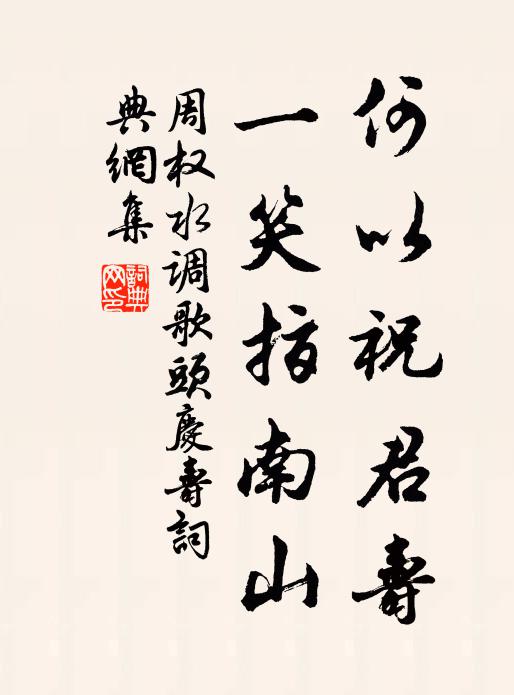 何以祝君壽
一笑指南山
周权水调歌頭慶壽詞
典網集
詞典
网印